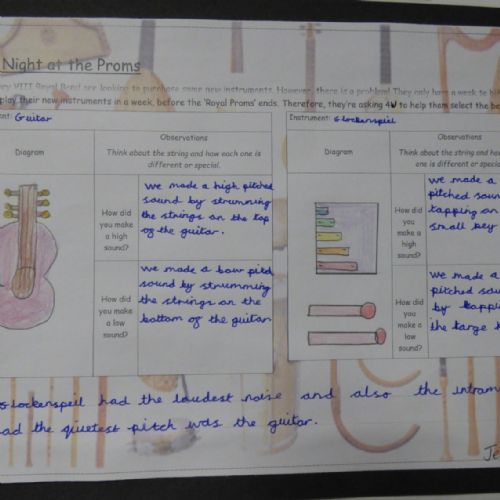 Night at the Proms
VIII Royal Band are looking to purchase some new instruments. However, there is a problem! They only have a week to
play their new instruments in a week, before the 'Royal Proms' ends. Therefore, they're asking 4U to help them select the
Guitar
Instrument: Glockenspiel
Diagram
Observations
Think about the string and how each one is
different or special.
How did
you make
a high
sound?
we made a high pitched
sound by strumming
the strings on the top
of the guitar.
How did
you make
a low
sound?
We made a low pitch
sound by strumming
the strings on the
bottom of the guitar
Diagram
Observations
Think about the string and how
one is different or special.
How did
you make
a high
sound?
we made a
pitched
tapping on
small key
How did
you make
a low
sound?
we made a
pitched
by tapping
the large
Glockenspeil had the loudest noise and also the
had the quietest pitch was the guitar.